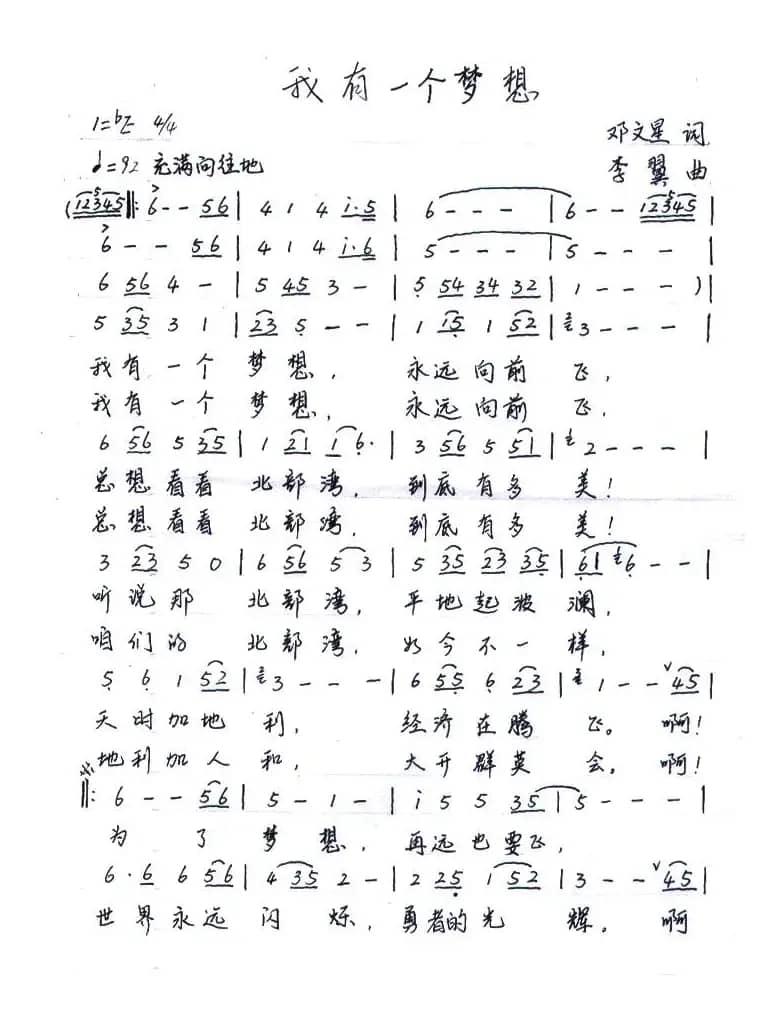 我有一个梦想
1=♭E 4/4
邓文星 词
♩=92 充满向往地
李翼 曲
(12345 ‖: 6 - - 56 | 4 1 4 i·5 | 6 - - - | 6 - - 12345 |
6 - - 56 | 4 1 4 i·6 | 5 - - - | 5 - - - |
6 56 4 - | 5 45 3 - | 5 54 34 32 | 1 - - - )|
5 35 3 1 | 23 5 - - | 1 15 1 52 | 3 - - - |
我有一个梦想, 永远向前飞,
我有一个梦想, 永远向前飞,
6 56 5 35 | 1 21 1 6· | 3 56 5 51 | 2 - - - |
总想看看北部湾, 到底有多美!
总想看看北部湾, 到底有多美!
3 23 5 0 | 6 56 5 3 | 5 35 23 35 | 61 6 - - |
听说那北部湾, 平地起波澜,
咱们的北部湾, 如今不一样,
5 6 1 52 | 3 - - - | 6 55 6 23 | 1 - - 45 |
天时加地利, 经济在腾飞。啊!
地利加人和, 大开群英会。啊!
‖: 6 - - 56 | 5 - 1 - | i 5 5 35 | 5 - - - |
为了梦想, 再远也要飞,
6·6 6 56 | 4 35 2 - | 2 25 1 52 | 3 - - 45 |
世界永远闪烁, 勇者的光辉。啊